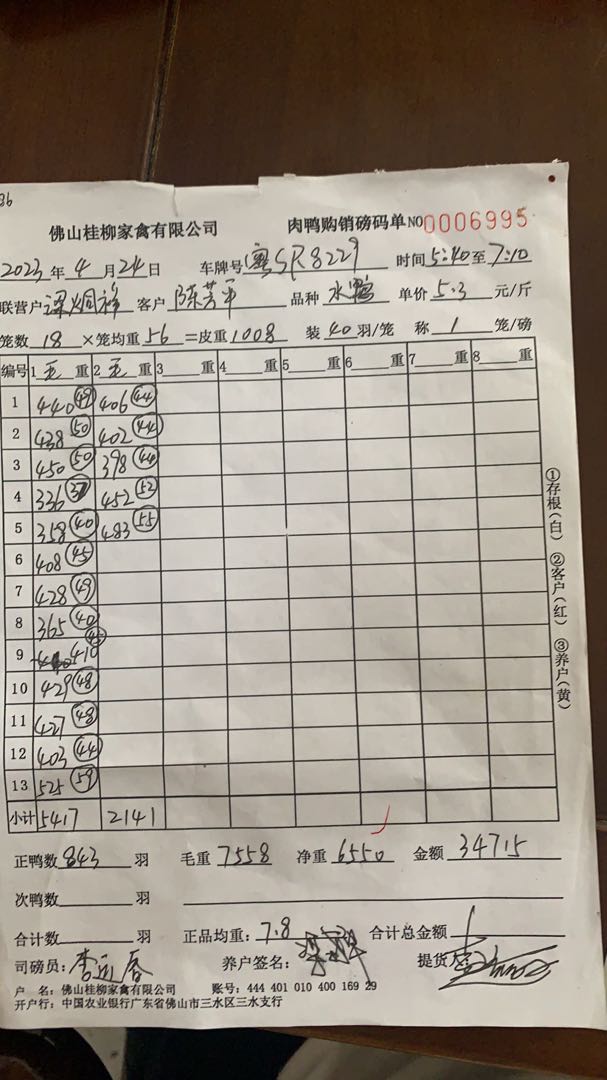 36
佛山桂柳家禽有限公司 肉鸭购销磅码单 NO 0006995
2023年4月24日 车牌号 粤SR8229 时间5:40至7:10
联营户 梁炳禄 客户 陈芳平 品种 水鸭 单价5.3元/斤
笼数18×笼均重56=皮重1008 装40羽/笼 称1笼/磅
编号 1毛重 2毛重 3重 4重 5重 6重 7重 8重
1 440 49 406 44
2 438 50 402 44
3 450 50 398 44
4 336 37 452 52
5 358 40 483 55
6 408 45
7 428 49
8 365 40
9 410 45
10 429 48
11 427 48
12 403 44
13 525 59
小计 5417 2141
①存根(白) ②客户(红) ③养户(黄)
正鸭数843羽 毛重7558 净重6550 金额34715
次鸭数 羽
合计数 羽 正品均重:7.8 合计总金额
司磅员: 养户签名: 提货人:
户 名:佛山桂柳家禽有限公司 账号:444 401 010 400 169 29
开户行:中国农业银行广东省佛山市三水区三水支行